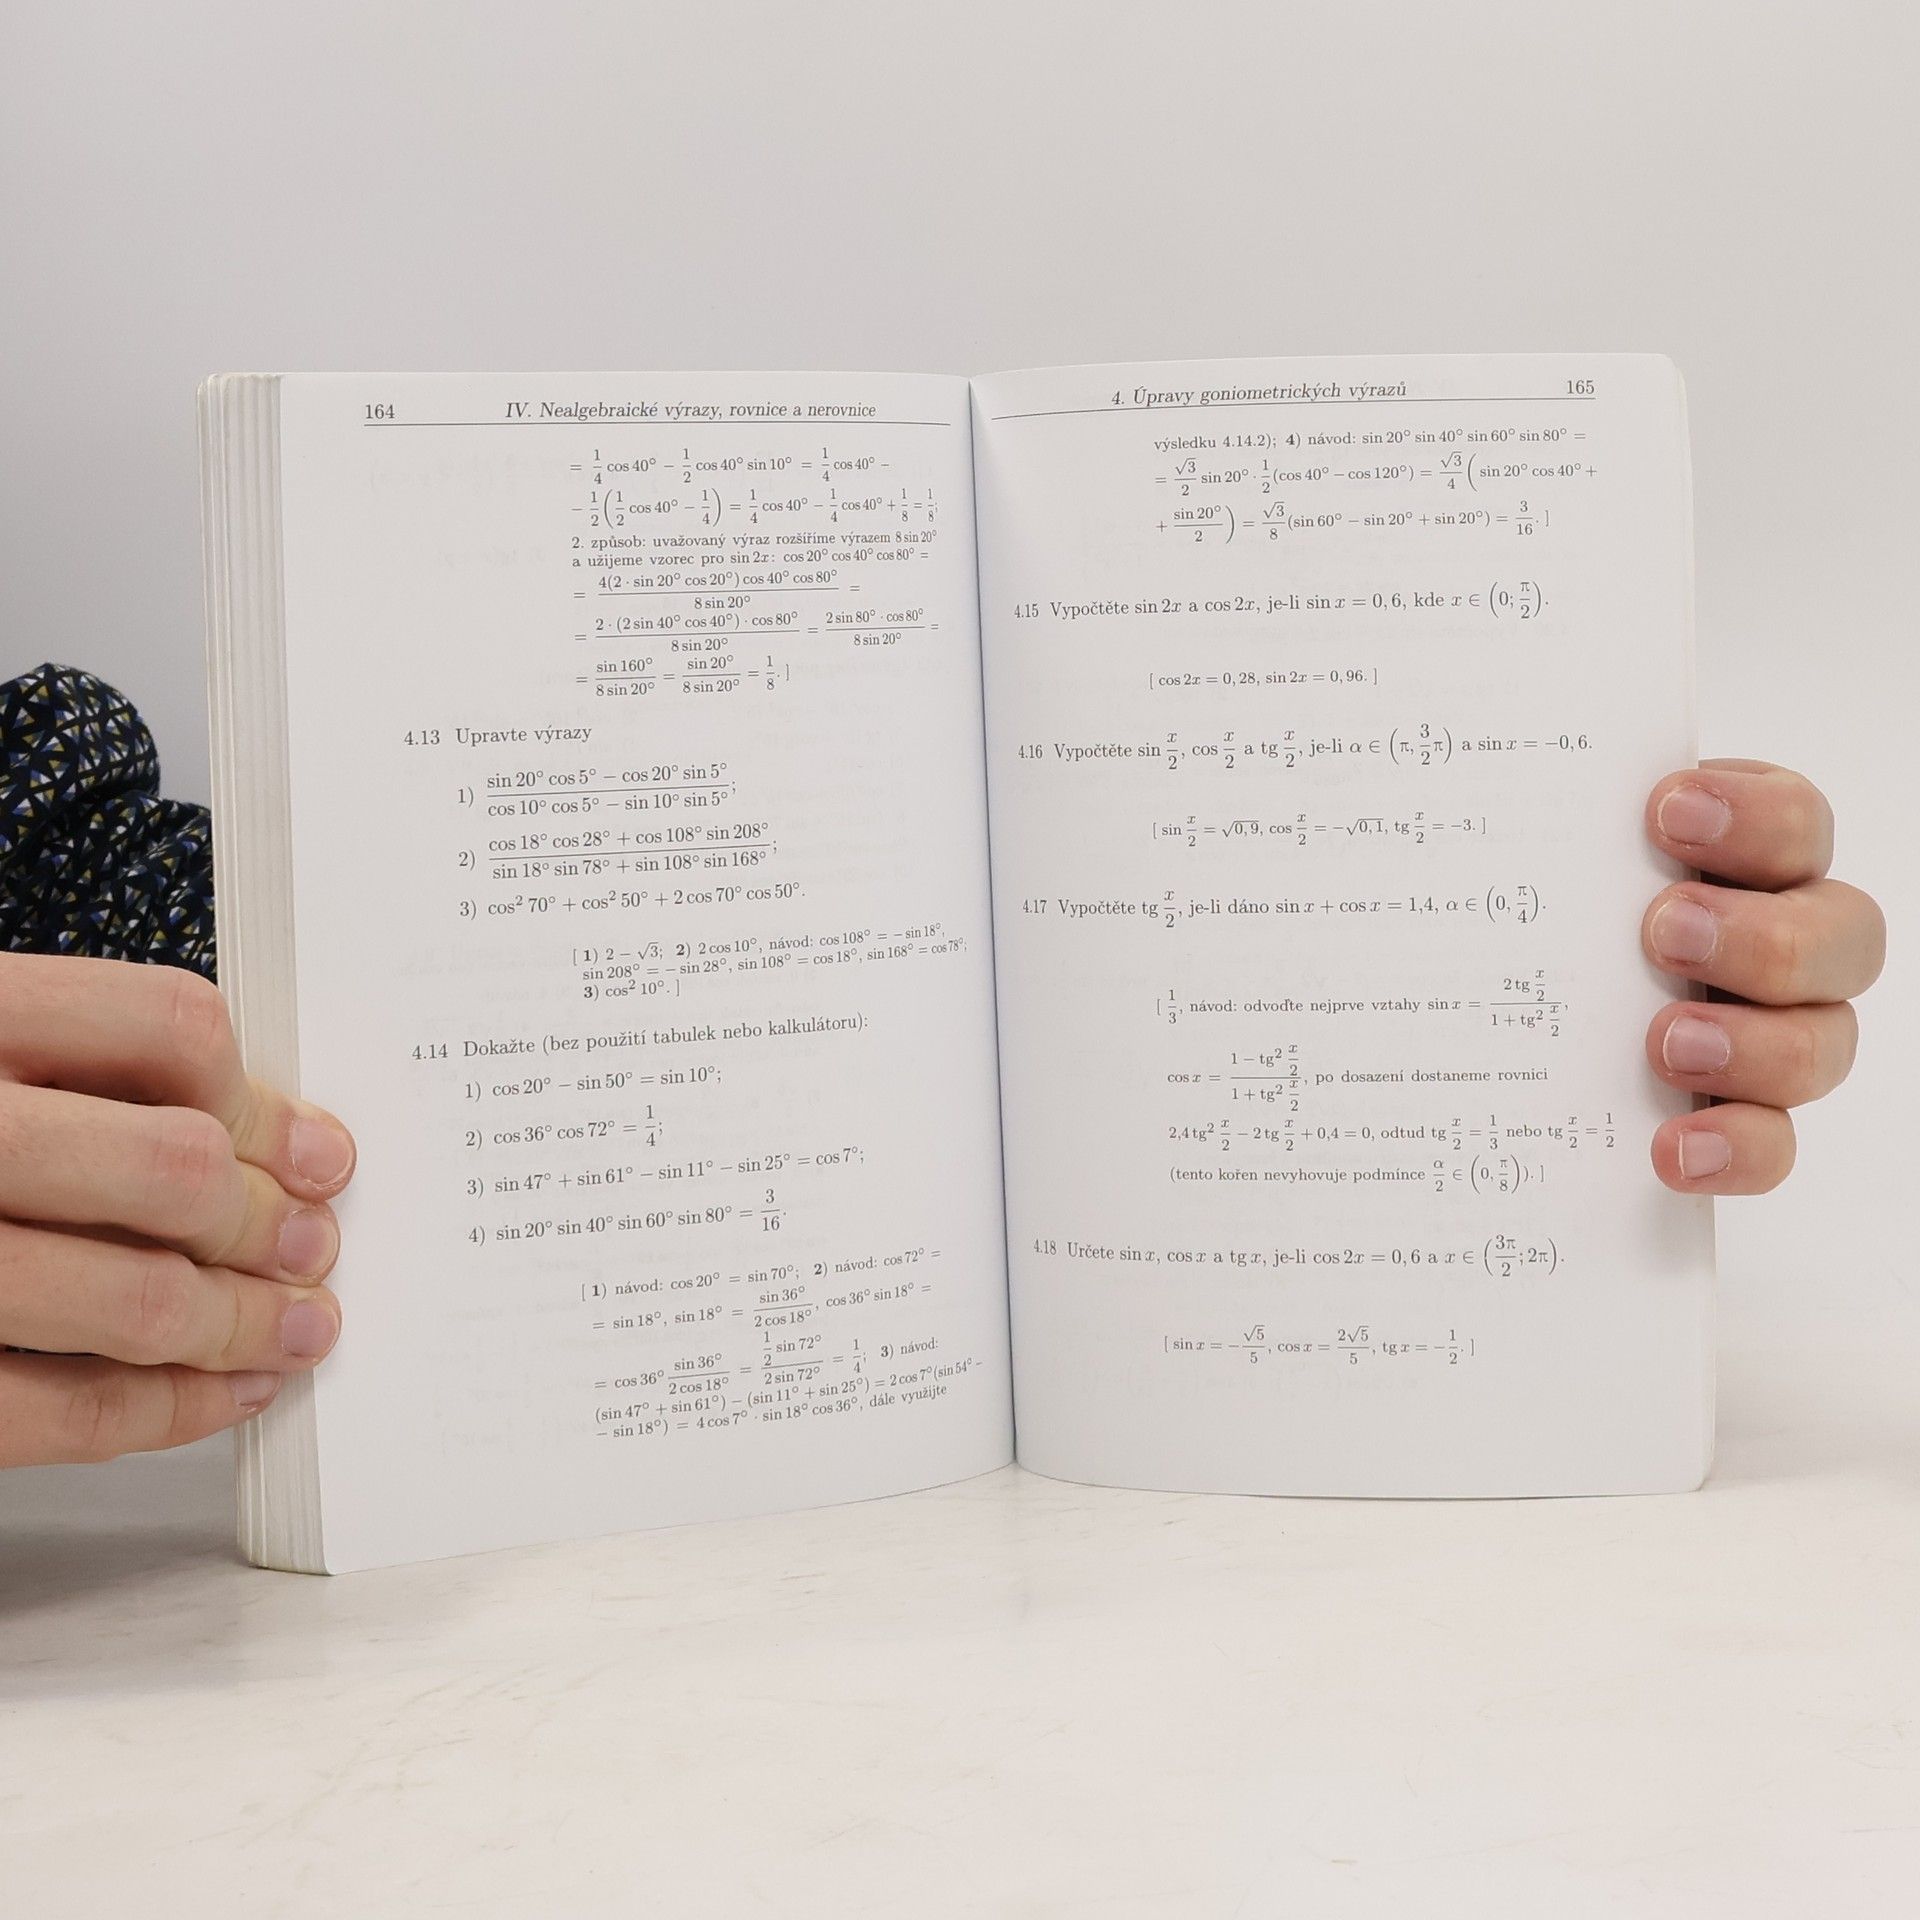 164 IV. Nealgebraické výrazy, rovnice a nerovnice
= 1/4 cos 40° − 1/2 cos 40° sin 10° = 1/4 cos 40° −
− 1/2 (1/2 cos 40° − 1/4) = 1/4 cos 40° − 1/4 cos 40° + 1/8 = 1/8;
2. způsob: uvažovaný výraz rozšíříme výrazem 8 sin 20°
a užijeme vzorec pro sin 2x: cos 20° cos 40° cos 80° =
= 4(2 · sin 20° cos 20°) cos 40° cos 80° / 8 sin 20° =
= 2 · (2 sin 40° cos 40°) · cos 80° / 8 sin 20° = 2 sin 80° · cos 80° / 8 sin 20° =
= sin 160° / 8 sin 20° = sin 20° / 8 sin 20° = 1/8. ]
4.13 Upravte výrazy
1) sin 20° cos 5° − cos 20° sin 5° / cos 10° cos 5° − sin 10° sin 5°;
2) cos 18° cos 28° + cos 108° sin 208° / sin 18° sin 78° + sin 108° sin 168°;
3) cos² 70° + cos² 50° + 2 cos 70° cos 50°.
[ 1) 2 − √3; 2) 2 cos 10°, návod: cos 108° = − sin 18°,
sin 208° = − sin 28°, sin 108° = cos 18°, sin 168° = cos 78°;
3) cos² 10°. ]
4.14 Dokažte (bez použití tabulek nebo kalkulátoru):
1) cos 20° − sin 50° = sin 10°;
2) cos 36° cos 72° = 1/4;
3) sin 47° + sin 61° − sin 11° − sin 25° = cos 7°;
4) sin 20° sin 40° sin 60° sin 80° = 3/16.
[ 1) návod: cos 20° = sin 70°; 2) návod: cos 72° =
= sin 18°, sin 18° = sin 36° / 2 cos 18°, cos 36° sin 18° =
= cos 36° sin 36° / 2 cos 18° = 1/2 sin 72° / 2 sin 72° = 1/4; 3) návod:
(sin 47° + sin 61°) − (sin 11° + sin 25°) = 2 cos 7° (sin 54° −
− sin 18°) = 4 cos 7° · sin 18° cos 36°, dále využijte
4. Úpravy goniometrických výrazů 165
výsledku 4.14.2); 4) návod: sin 20° sin 40° sin 60° sin 80° =
= √3/2 sin 20° · 1/2 (cos 40° − cos 120°) = √3/4 ( sin 20° cos 40° +
+ sin 20°/2 ) = √3/8 (sin 60° − sin 20° + sin 20°) = 3/16. ]
4.15 Vypočtěte sin 2x a cos 2x, je-li sin x = 0, 6, kde x ∈ (0; π/2).
[ cos 2x = 0, 28, sin 2x = 0, 96. ]
4.16 Vypočtěte sin x/2, cos x/2 a tg x/2, je-li α ∈ (π, 3/2 π) a sin x = −0, 6.
[ sin x/2 = √0, 9, cos x/2 = −√0, 1, tg x/2 = −3. ]
4.17 Vypočtěte tg x/2, je-li dáno sin x + cos x = 1,4, α ∈ (0, π/4).
[ 1/3, návod: odvoďte nejprve vztahy sin x = 2 tg x/2 / 1 + tg² x/2,
cos x = 1 − tg² x/2 / 1 + tg² x/2, po dosazení dostaneme rovnici
2,4 tg² x/2 − 2 tg x/2 + 0,4 = 0, odtud tg x/2 = 1/3 nebo tg x/2 = 1/2
(tento kořen nevyhovuje podmínce α/2 ∈ (0, π/8)). ]
4.18 Určete sin x, cos x a tg x, je-li cos 2x = 0, 6 a x ∈ (3π/2; 2π).
[ sin x = −√5/5, cos x = 2√5/5, tg x = −1/2. ]